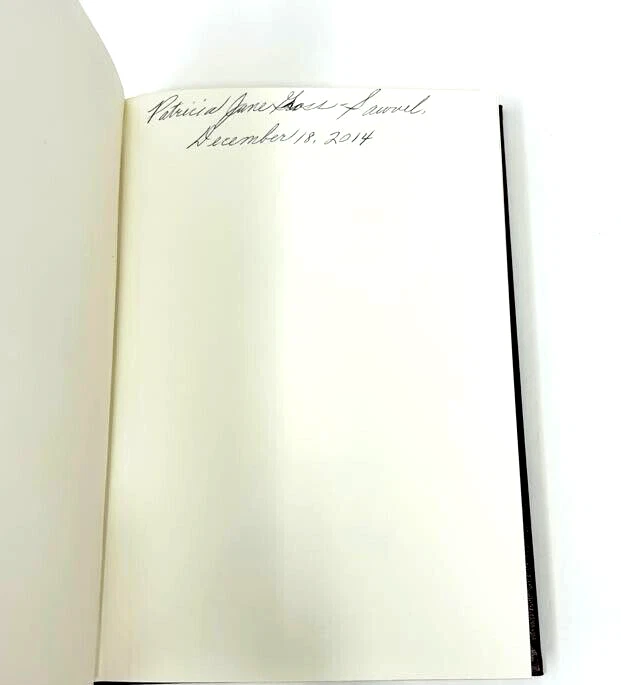 Patricia Jane Goss-Sawvel.
December 18, 2014